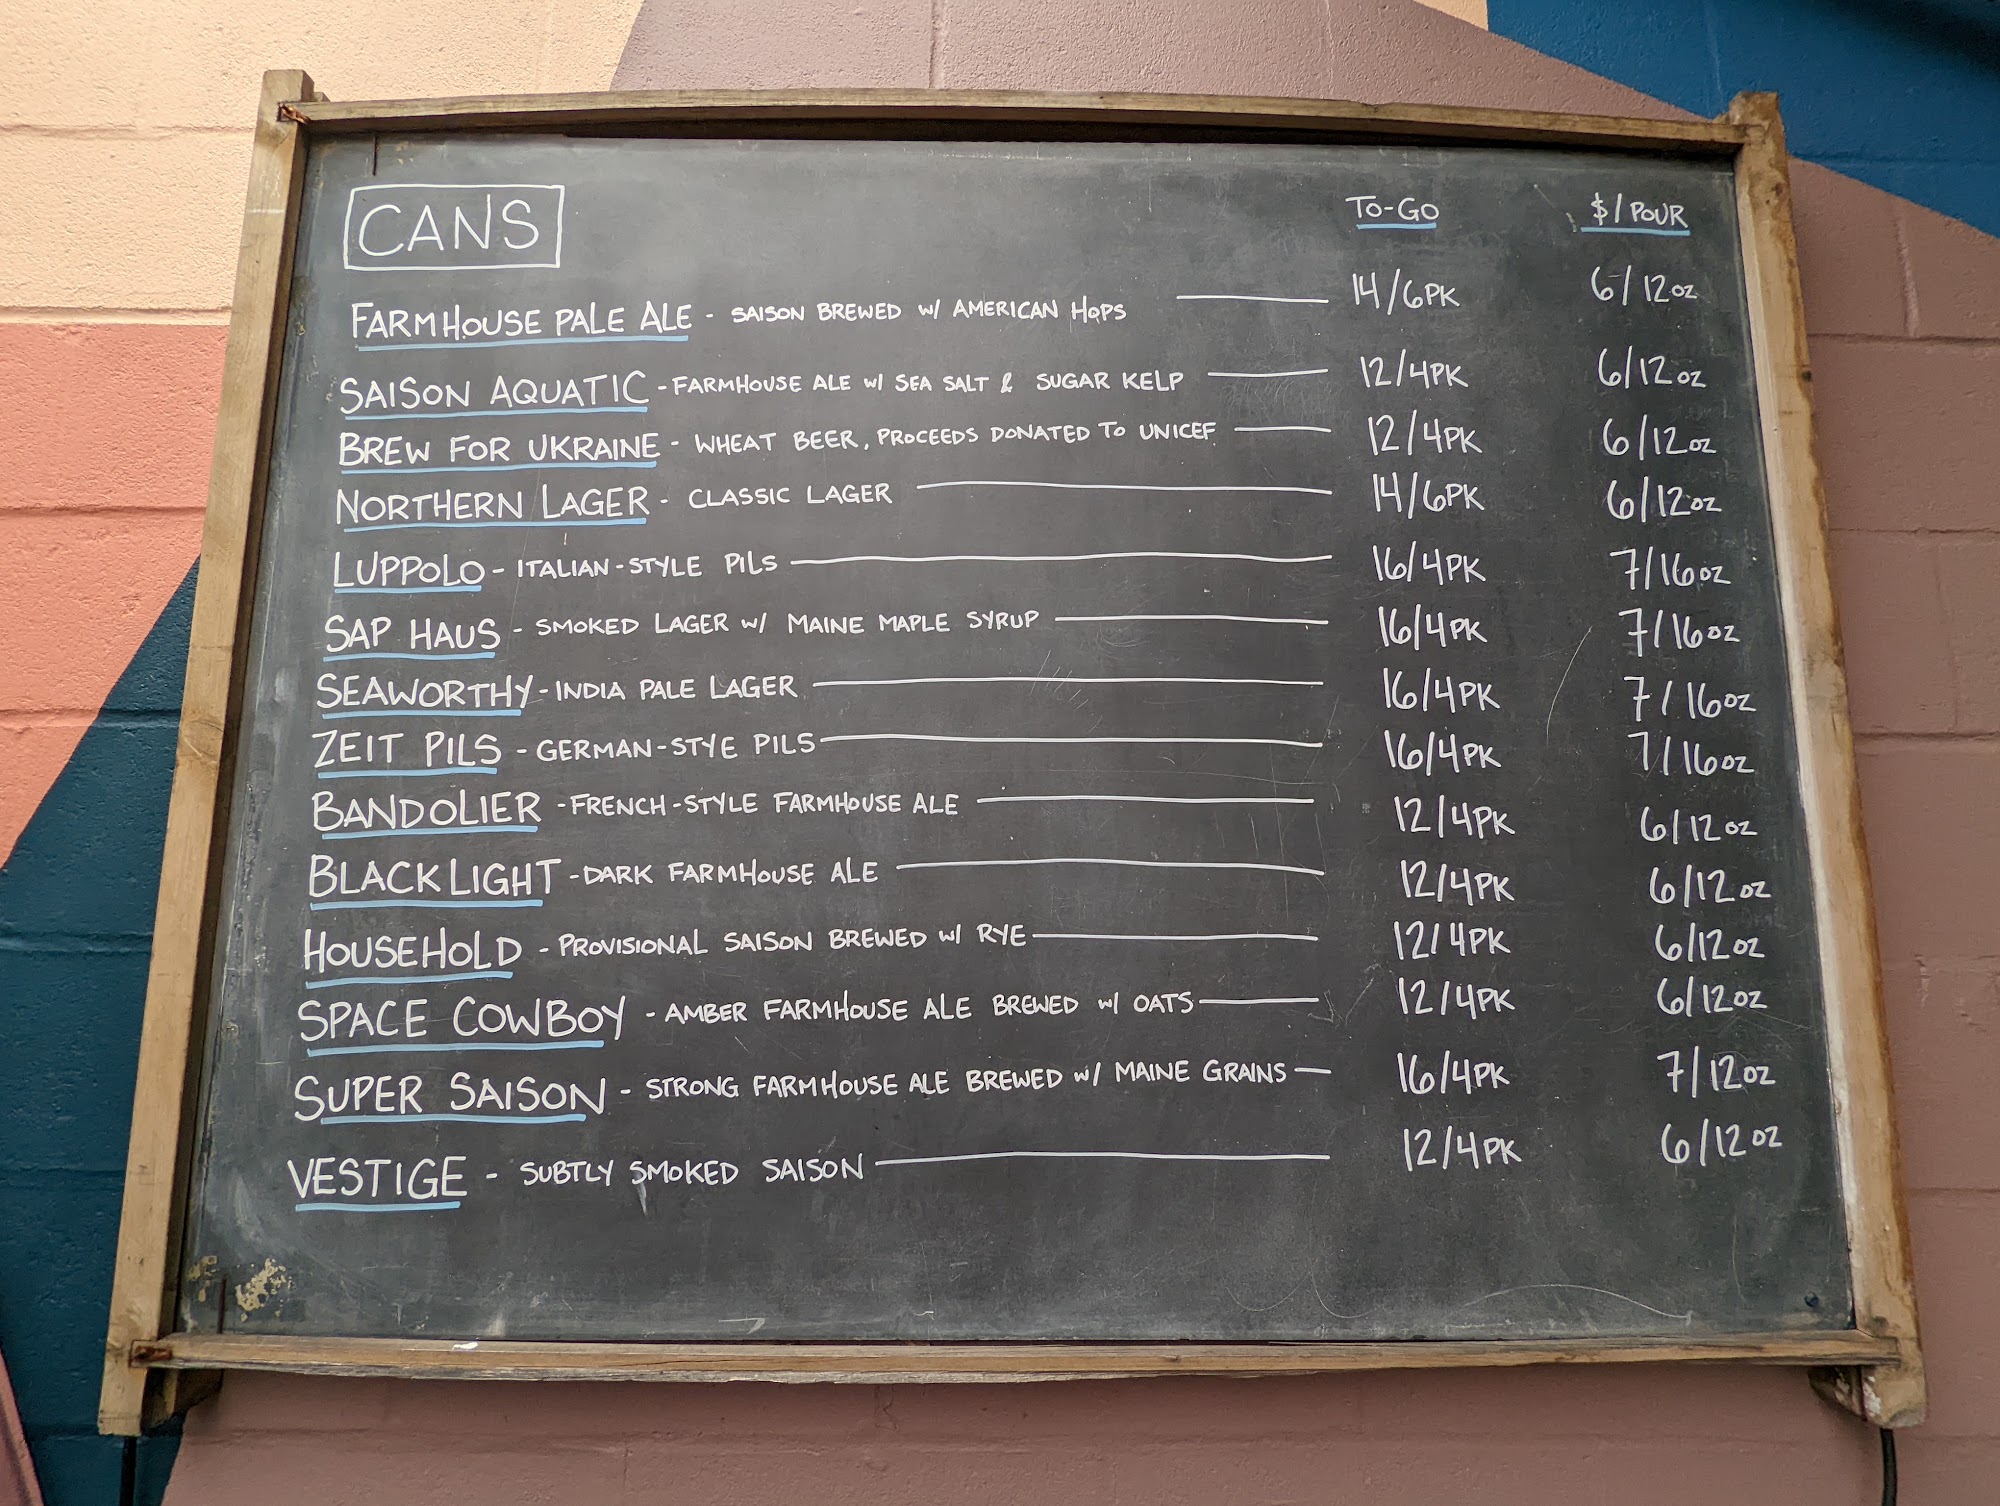 CANS TO-GO $/POUR
FARMHOUSE PALE ALE - SAISON BREWED W/ AMERICAN HOPS 14/6PK 6/12OZ
SAISON AQUATIC - FARMHOUSE ALE W/ SEA SALT & SUGAR KELP 12/4PK 6/12OZ
BREW FOR UKRAINE - WHEAT BEER, PROCEEDS DONATED TO UNICEF 12/4PK 6/12OZ
NORTHERN LAGER - CLASSIC LAGER 14/6PK 6/12OZ
LUPPOLO - ITALIAN-STYLE PILS 16/4PK 7/16OZ
SAP HAUS - SMOKED LAGER W/ MAINE MAPLE SYRUP 16/4PK 7/16OZ
SEAWORTHY - INDIA PALE LAGER 16/4PK 7/16OZ
ZEIT PILS - GERMAN-STYE PILS 16/4PK 7/16OZ
BANDOLIER - FRENCH-STYLE FARMHOUSE ALE 12/4PK 6/12OZ
BLACK LIGHT - DARK FARMHOUSE ALE 12/4PK 6/12OZ
HOUSEHOLD - PROVISIONAL SAISON BREWED W/ RYE 12/4PK 6/12OZ
SPACE COWBOY - AMBER FARMHOUSE ALE BREWED W/ OATS 12/4PK 6/12OZ
SUPER SAISON - STRONG FARMHOUSE ALE BREWED W/ MAINE GRAINS 16/4PK 7/12OZ
VESTIGE - SUBTLY SMOKED SAISON 12/4PK 6/12OZ